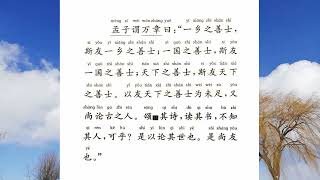 mèng zǐ wèi wàn zhāng yuē yì xiāng zhī shàn shì
孟子谓万章曰：“一乡之善士，
sī yǒu yì xiāng zhī shàn shì yì guó zhī shàn shì sī yǒu
斯友一乡之善士；一国之善士，斯友
yì guó zhī shàn shì tiān xià zhī shàn shì sī yǒu tiān xià
一国之善士；天下之善士，斯友天下
zhī shàn shì yǐ yǒu tiān xià zhī shàn shì wéi wèi zú yòu
之善士。以友天下之善士为未足，又
shàng lùn gǔ zhī rén sòng qí shī dú qí shū bù zhī
尚论古之人。颂其诗，读其书，不知
qí rén kě hū shì yǐ lùn qí shì yě shì shàng yǒu
其人，可乎？是以论其世也。是尚友
yě
也。”